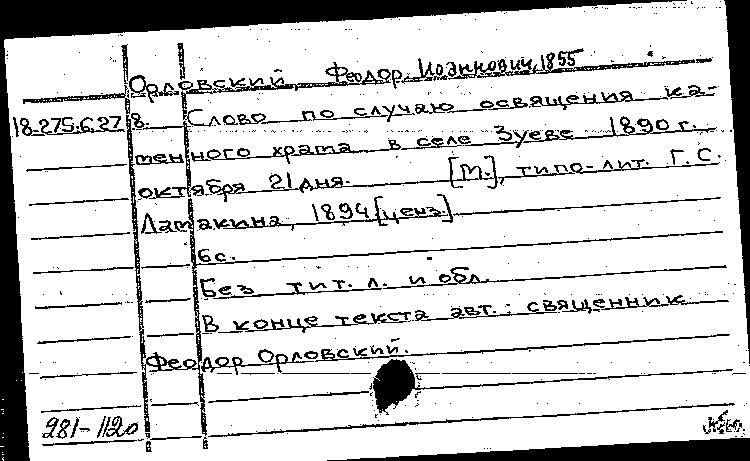 Орловский, Феодор Иоаннович, 1855
18.275.6.27 8. Слово по случаю освящения ка-
менного храма в селе Зуеве 1890 г.
октября 21 дня. [М.], типо-лит. Г.С.
Ламакина, 1894 [ценз.]
6с.
Без тит. л. и обл.
В конце текста авт.: священник
Феодор Орловский.
281-1120